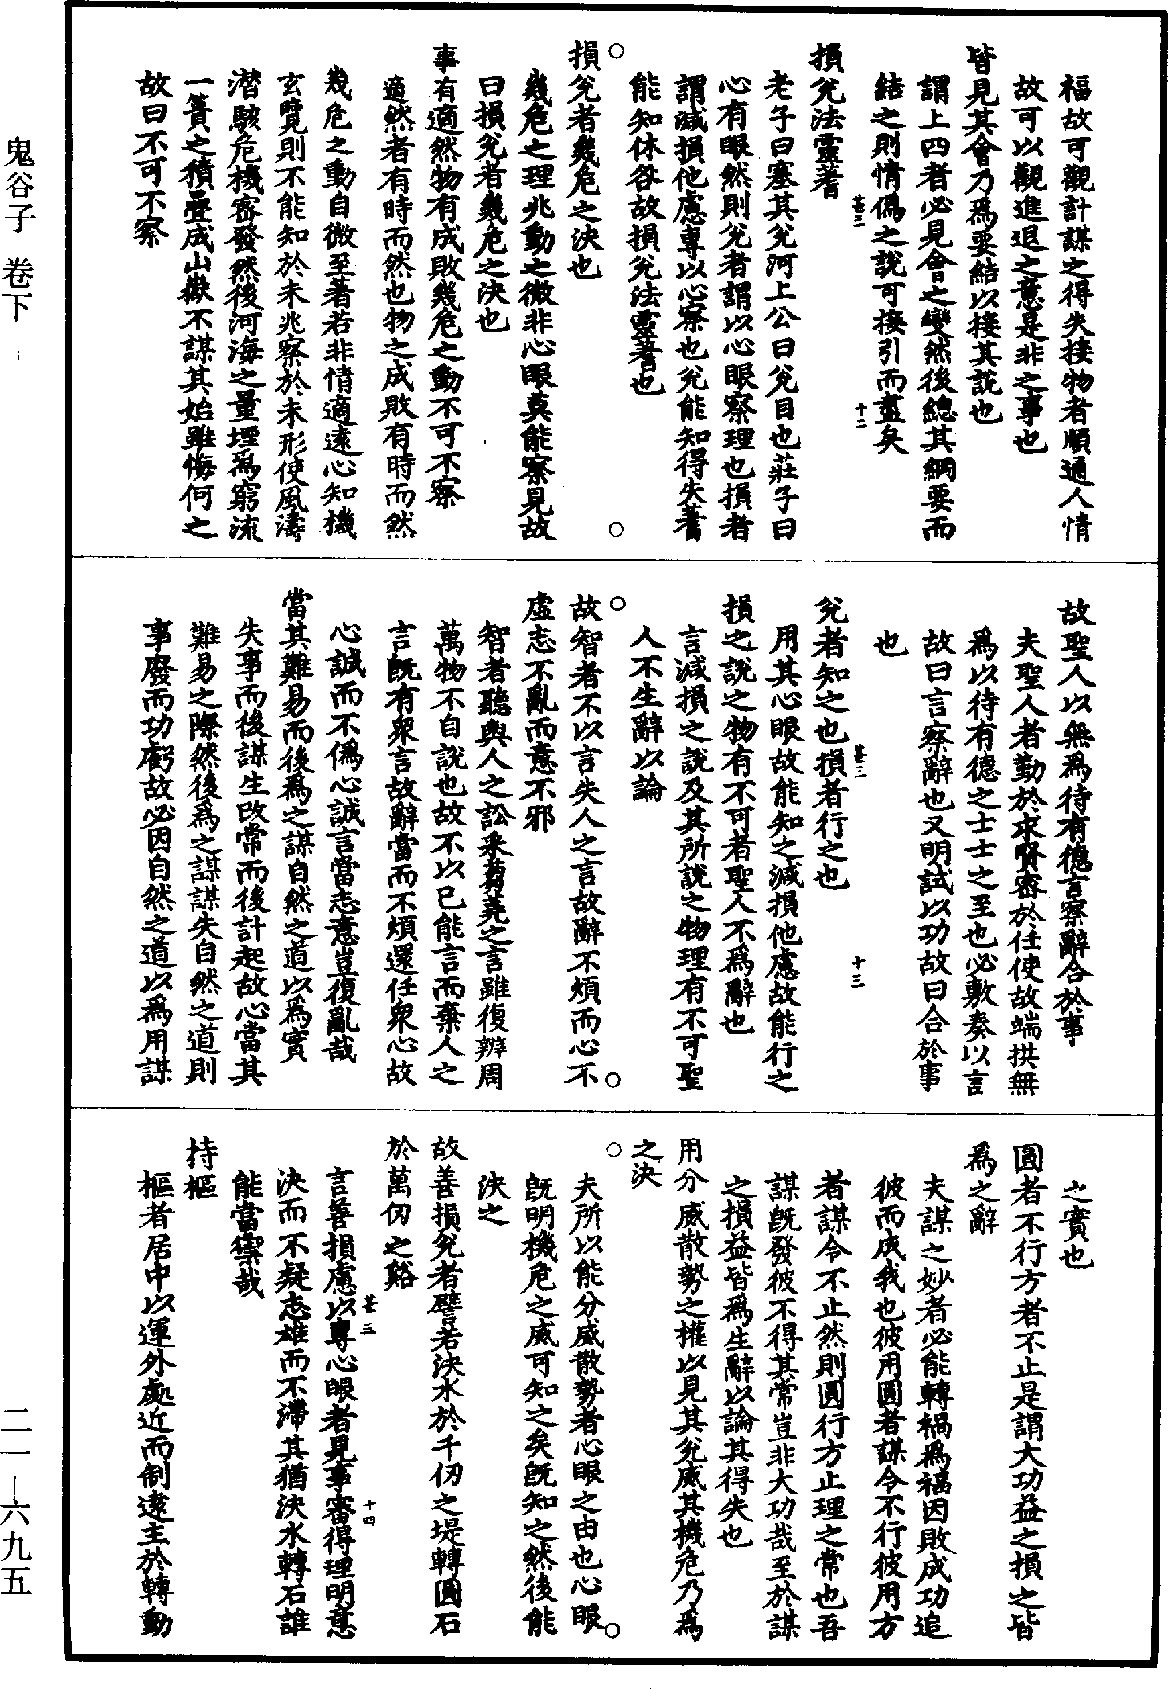 福故可觀計謀之得失接物者順通人情
故可以觀進退之意是非之事也
皆見其會乃為要結以接其說也
謂上四者必見會之變然後總其綱要而
結之則情偽之說可接引而盡矣
損兊法靈蓍
老子曰塞其兊河上公曰兊目也莊子曰
心有眼然則兊者謂以心眼察理也損者
謂減損他慮專以心察也兊能知得失蓍
能知休咎故損兊法靈蓍也
損兊者幾危之決也
幾危之理兆動之微非心眼莫能察見故
曰損兊者幾危之決也
事有適然物有成敗幾危之動不可不察
適然者有時而然也物之成敗有時而然
幾危之動自微至著若非情適遠心知機
玄覽則不能知於未兆察於未形使風濤
潛駭危機密發然後河海之量堙為窮流
一簣之積疊成山嶽不謀其始雖悔何之
故曰不可不察
故聖人以無為待有德言察辭合於事
夫聖人者勤於求賢密於任使故端拱無
為以待有德之士士之至也必敷奏以言
故曰言察辭也又明試以功故曰合於事
也
兊者知之也損者行之也
用其心眼故能知之減損他慮故能行之
損之說之物有不可者聖人不為辭也
言減損之說及其所說之物理有不可聖
人不生辭以論
故智者不以言失人之言故辭不煩而心不
虛志不亂而意不邪
智者聽輿人之訟采芻蕘之言雖復辨周
萬物不自說也故不以己能言而棄人之
言既有眾言故辭當而不煩還任眾心故
心誠而不偽心誠言當志意豈復亂哉
當其難易而後為之謀自然之道以為實
失事而後謀生改常而後計起故心當其
難易之際然後為之謀謀失自然之道則
事廢而功虧故必因自然之道以為用謀
之實也
圓者不行方者不止是謂大功益之損之皆
為之辭
夫謀之妙者必能轉禍為福因敗成功追
彼而成我也彼用圓者謀令不行彼用方
者謀令不止然則圓行方止理之常也吾
謀既發彼不得其常豈非大功哉至於謀
之損益皆為生辭以論其得失也
用分威散勢之權以見其兊威其機危乃為
之決
夫所以能分威散勢者心眼之由也心眼
既明機危之威可知之矣既知之然後能
決之
故善損兊者譬若決水於千仞之堤轉圓石
於萬仞之谿
言善損慮以專心眼者見事審得理明意
決而不疑志雄而不滯其猶決水轉石誰
能當禦哉
持樞
樞者居中以運外處近而制遠主於轉動
甚三
十二
甚三
十三
甚三
十四
鬼谷子 卷下
二一—六九五